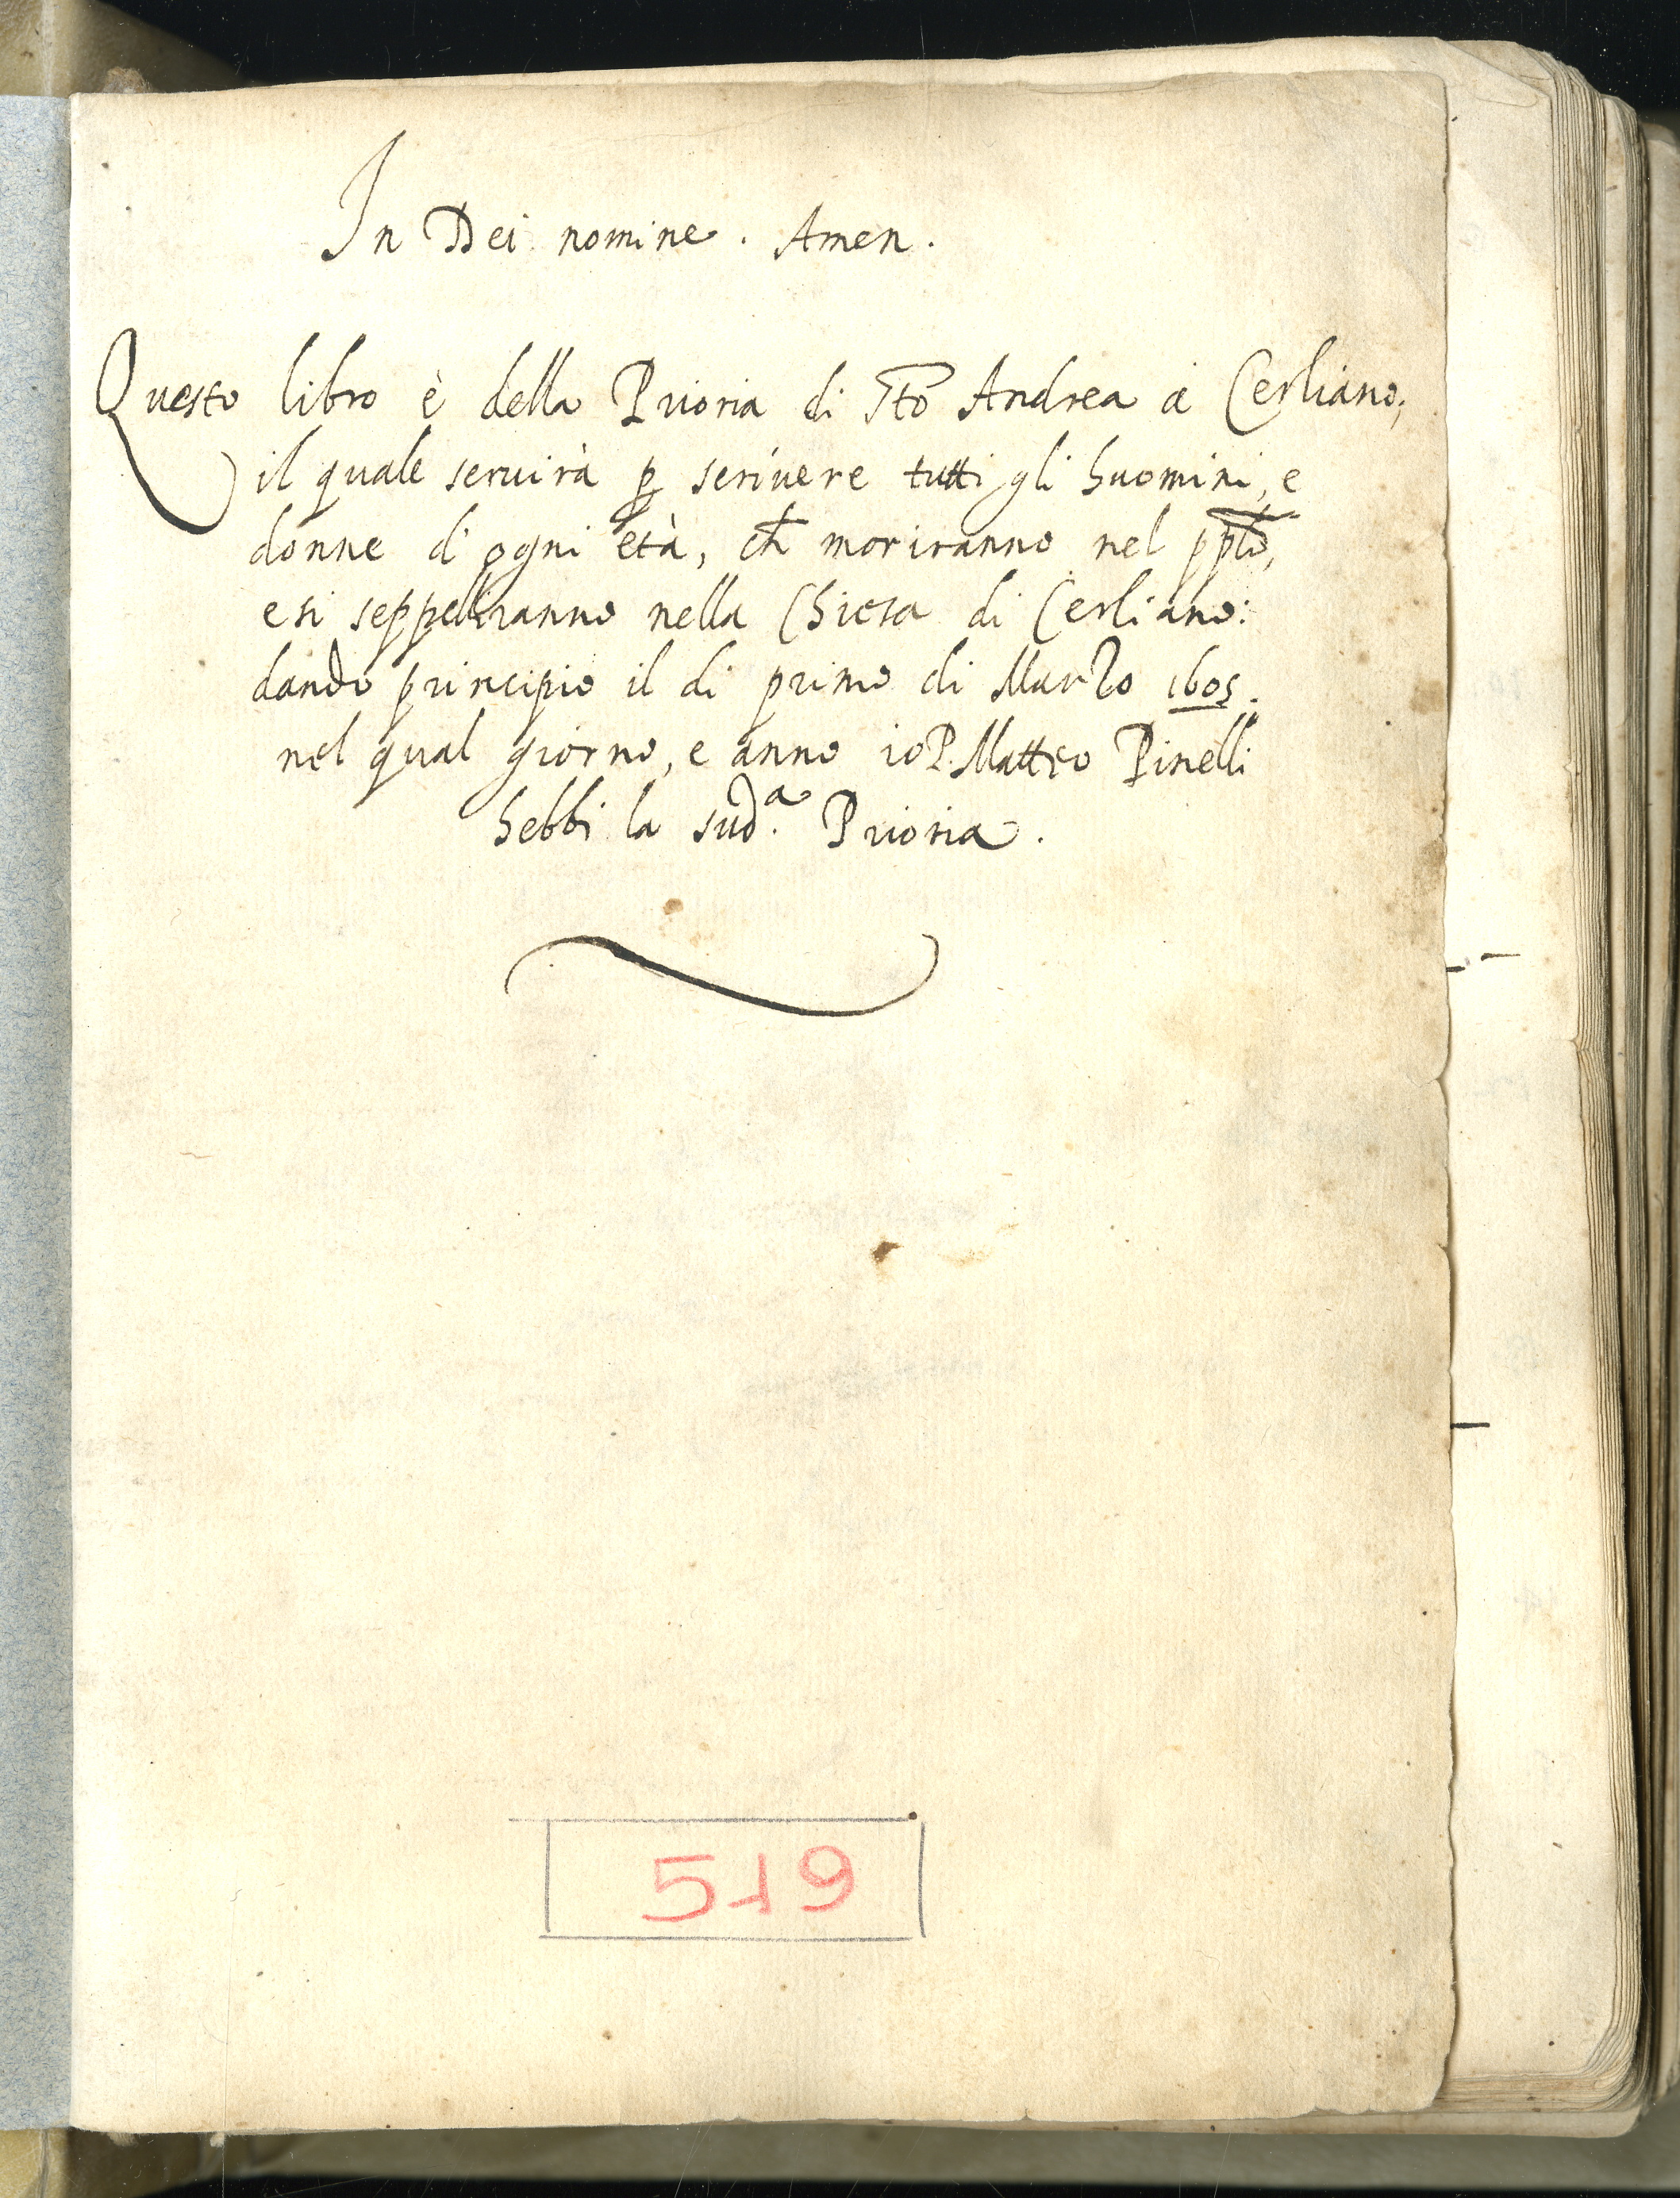 In Dei nomine. Amen.
Questo libro è della Prioria di Sto Andrea à Cerliano;
il quale seruirà p scriuere tutti gli huomini, e
donne d' ogni età, ch moriranno nel pplo,
e si seppelliranno nella Chiesa di Cerliano:
dando principio il di primo di Marzo 1605.
nel qual giorno, e anno io P. Matteo Pinelli
hebbi la sud.a Prioria.
519